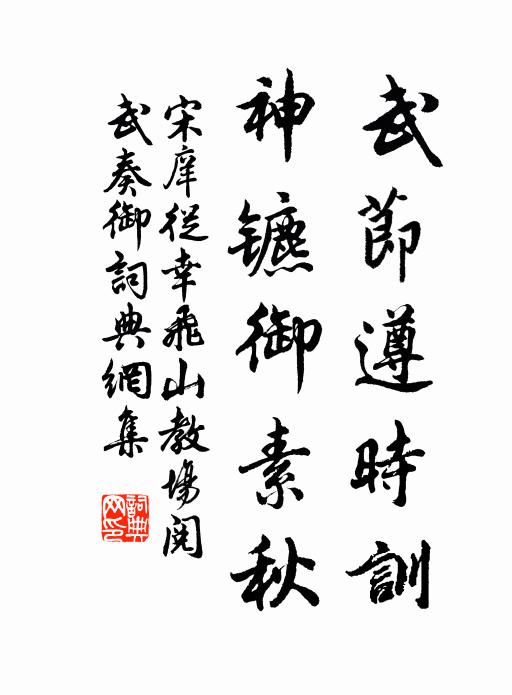 武節遵時訓
神鑣御素秋
宋庠從幸飛山教場閱
武奏御詞典網集
詞典網印